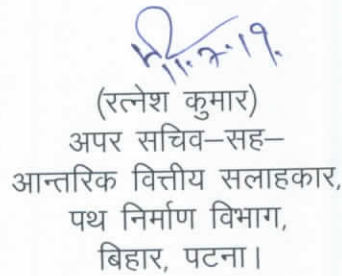 11.7.19.
(रत्नेश कुमार)
अपर सचिव–सह–
आन्तरिक वित्तीय सलाहकार,
पथ निर्माण विभाग,
बिहार, पटना।